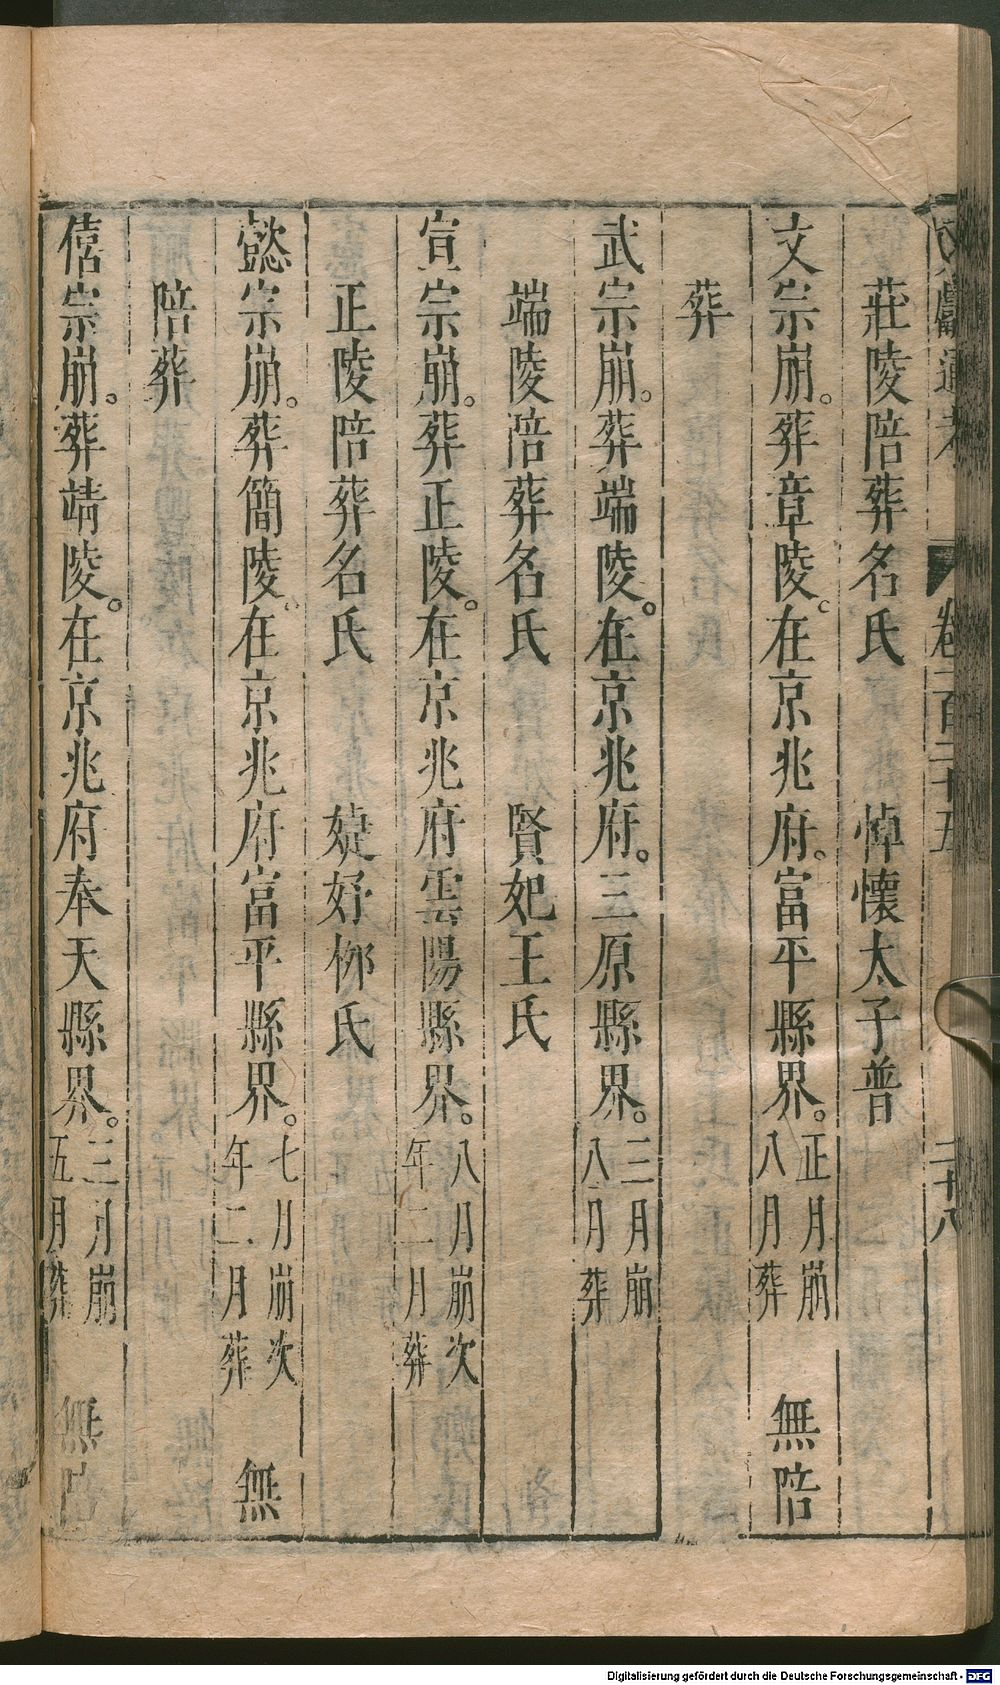 文獻通考 卷一百二十五 二十八
莊陵陪葬名氏 悼懷太子普
文宗崩。葬章陵。在京兆府。富平縣界。正月崩八月葬 無陪
葬
武宗崩。葬端陵。在京兆府。三原縣界。三月崩八月葬
端陵陪葬名氏 賢妃王氏
宣宗崩。葬正陵。在京兆府雲陽縣界。八月崩次年二月葬
正陵陪葬名氏 婕妤栁氏
懿宗崩。葬簡陵。在京兆府富平縣界。七月崩次年二月葬 無
陪葬
僖宗崩。葬靖陵。在京兆府奉天縣界。三月崩五月葬 無陪
Digitalisierung gefördert durch die Deutsche Forschungsgemeinschaft - DFG